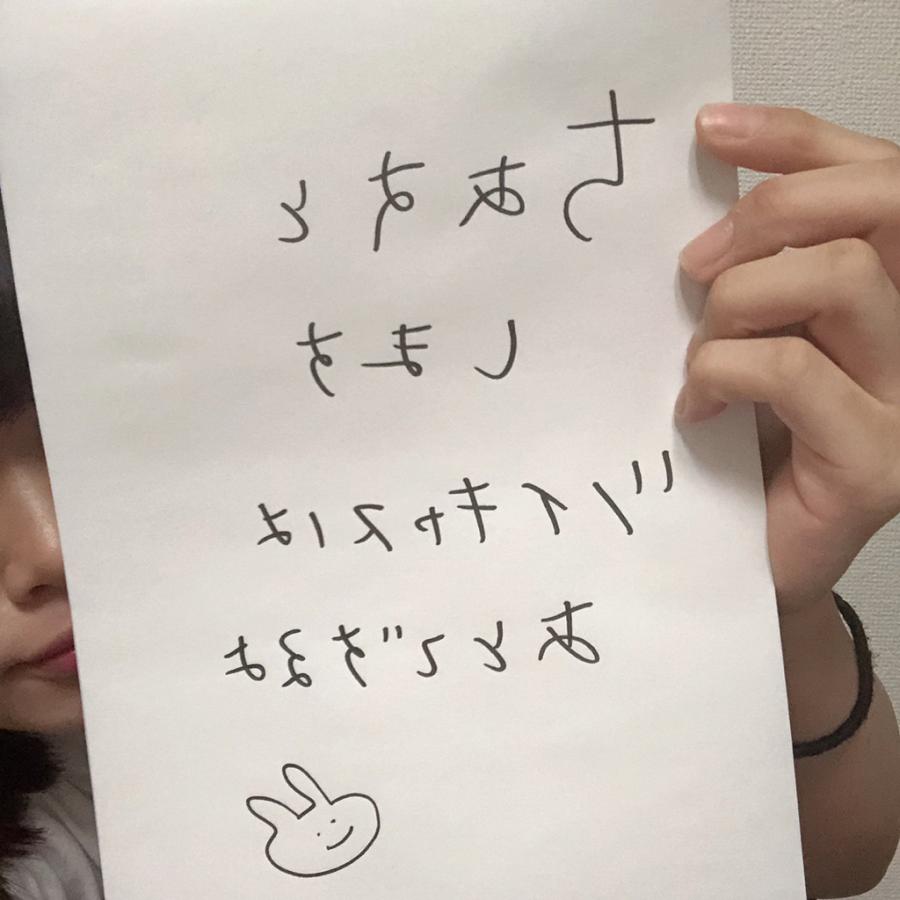 ちあすと
します
ツイキャスは
あとでするよ